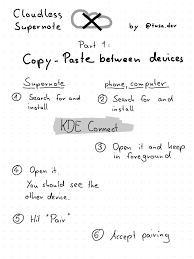 Cloudless
Supernote
by @tusa.dev
Part 1:
Copy-Paste between devices
Supernote
phone, computer
1 Search for and
install
2 Search for and
install
KDE Connect
3 Open it and keep
in foreground
4 Open it.
You should see the
other device.
5 Hit "Pair"
6 Accept pairing